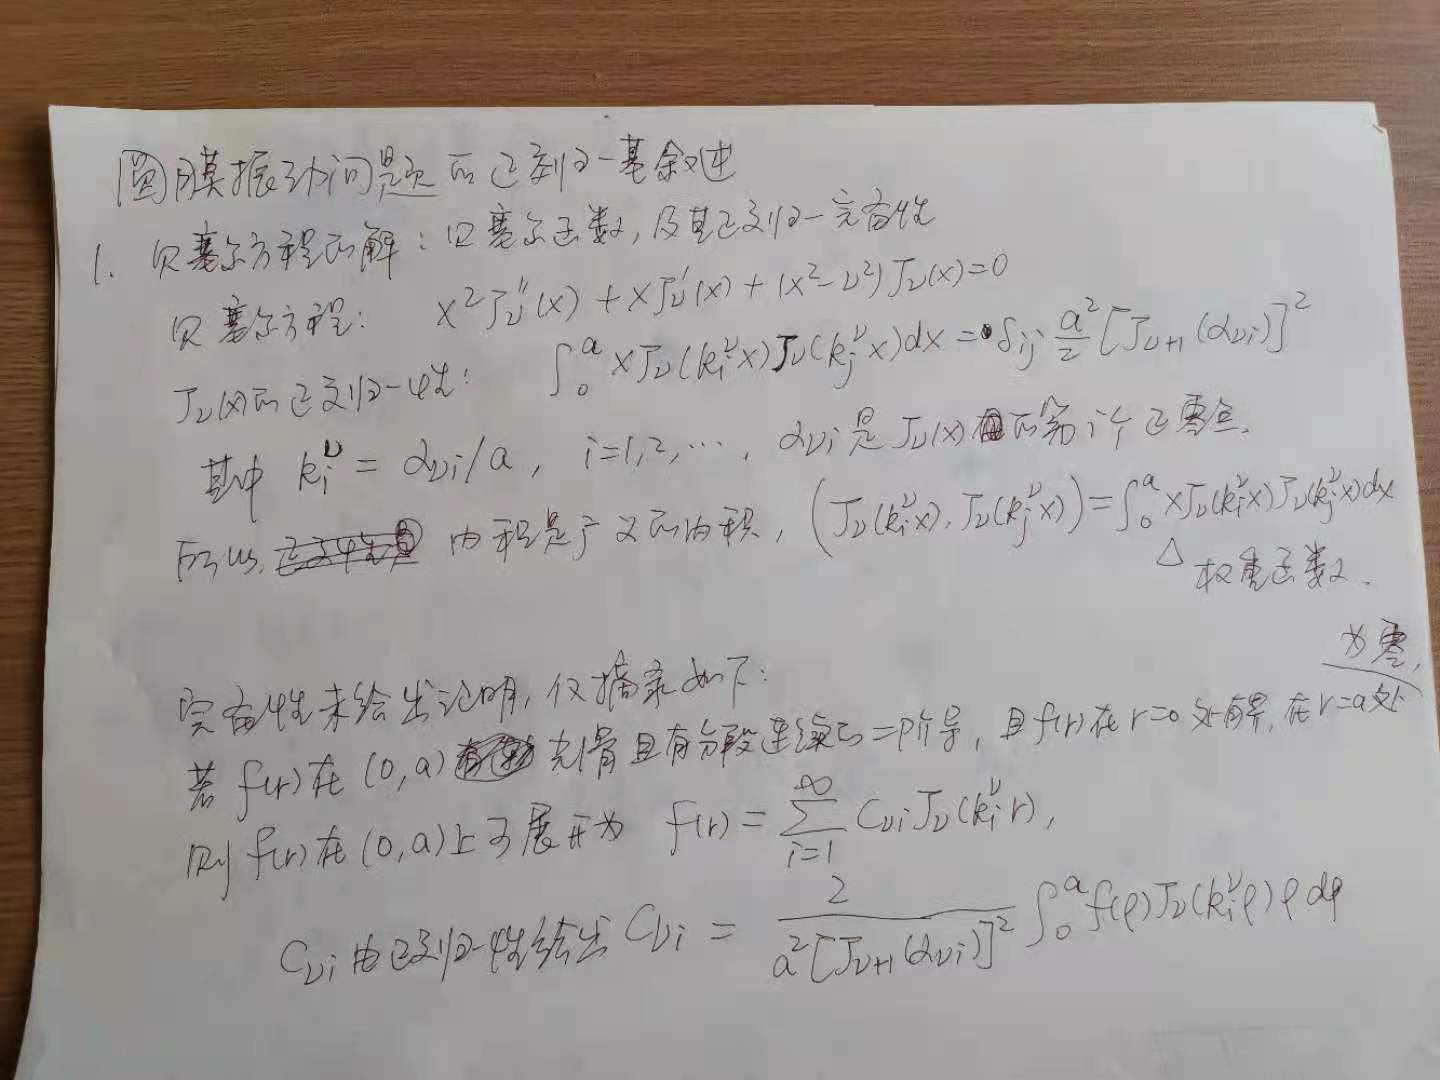 圆膜振动问题的正交归一基叙述
1. 贝塞尔方程的解:贝塞尔函数,及其正交归一完备性
贝塞尔方程: x²J_ν''(x) + xJ_ν'(x) + (x²-ν²)J_ν(x)=0
J_ν(x)的正交归一性: ∫₀ᵃ xJ_ν(k_i^ν x)J_ν(k_j^ν x)dx = δ_ij a²/2 [J_ν+1(α_νi)]²
其中 k_i^ν = α_νi/a, i=1,2,…, α_νi是J_ν(x)的第i个正零点.
所以, 内积是广义的内积, (J_ν(k_i^ν x), J_ν(k_j^ν x)) = ∫₀ᵃ xJ_ν(k_i^ν x)J_ν(k_j^ν x)dx
△ 权重函数.
完备性未给出证明,仅摘录如下:
为零,
若f(r)在(0,a)光滑且有分段连续的二阶导,且f(r)在r=0处有界,在r=a处
则f(r)在(0,a)上可展开为 f(r) = ∑_{i=1}^∞ C_νi J_ν(k_i^ν r),
C_νi由正交归一性给出 C_νi = 2/(a²[J_ν+1(α_νi)]²) ∫₀ᵃ f(ρ)J_ν(k_i^ν ρ)ρdρ